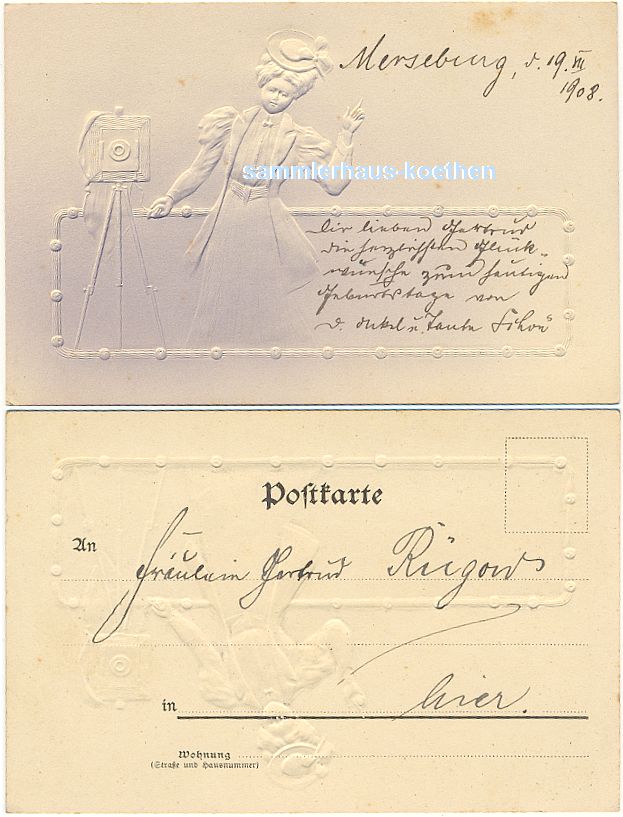 Merseburg, d. 19. VII
1908.
sammlerhaus-koethen
Dir lieben Gertrud
die herzlichsten Glück-
wünsche zum heutigen
Geburtstage von
d. Onkel u. Tante
Poſtkarte
An
Fräulein Gertrud
in
hier.
Wohnung
(Straße und Hausnummer)